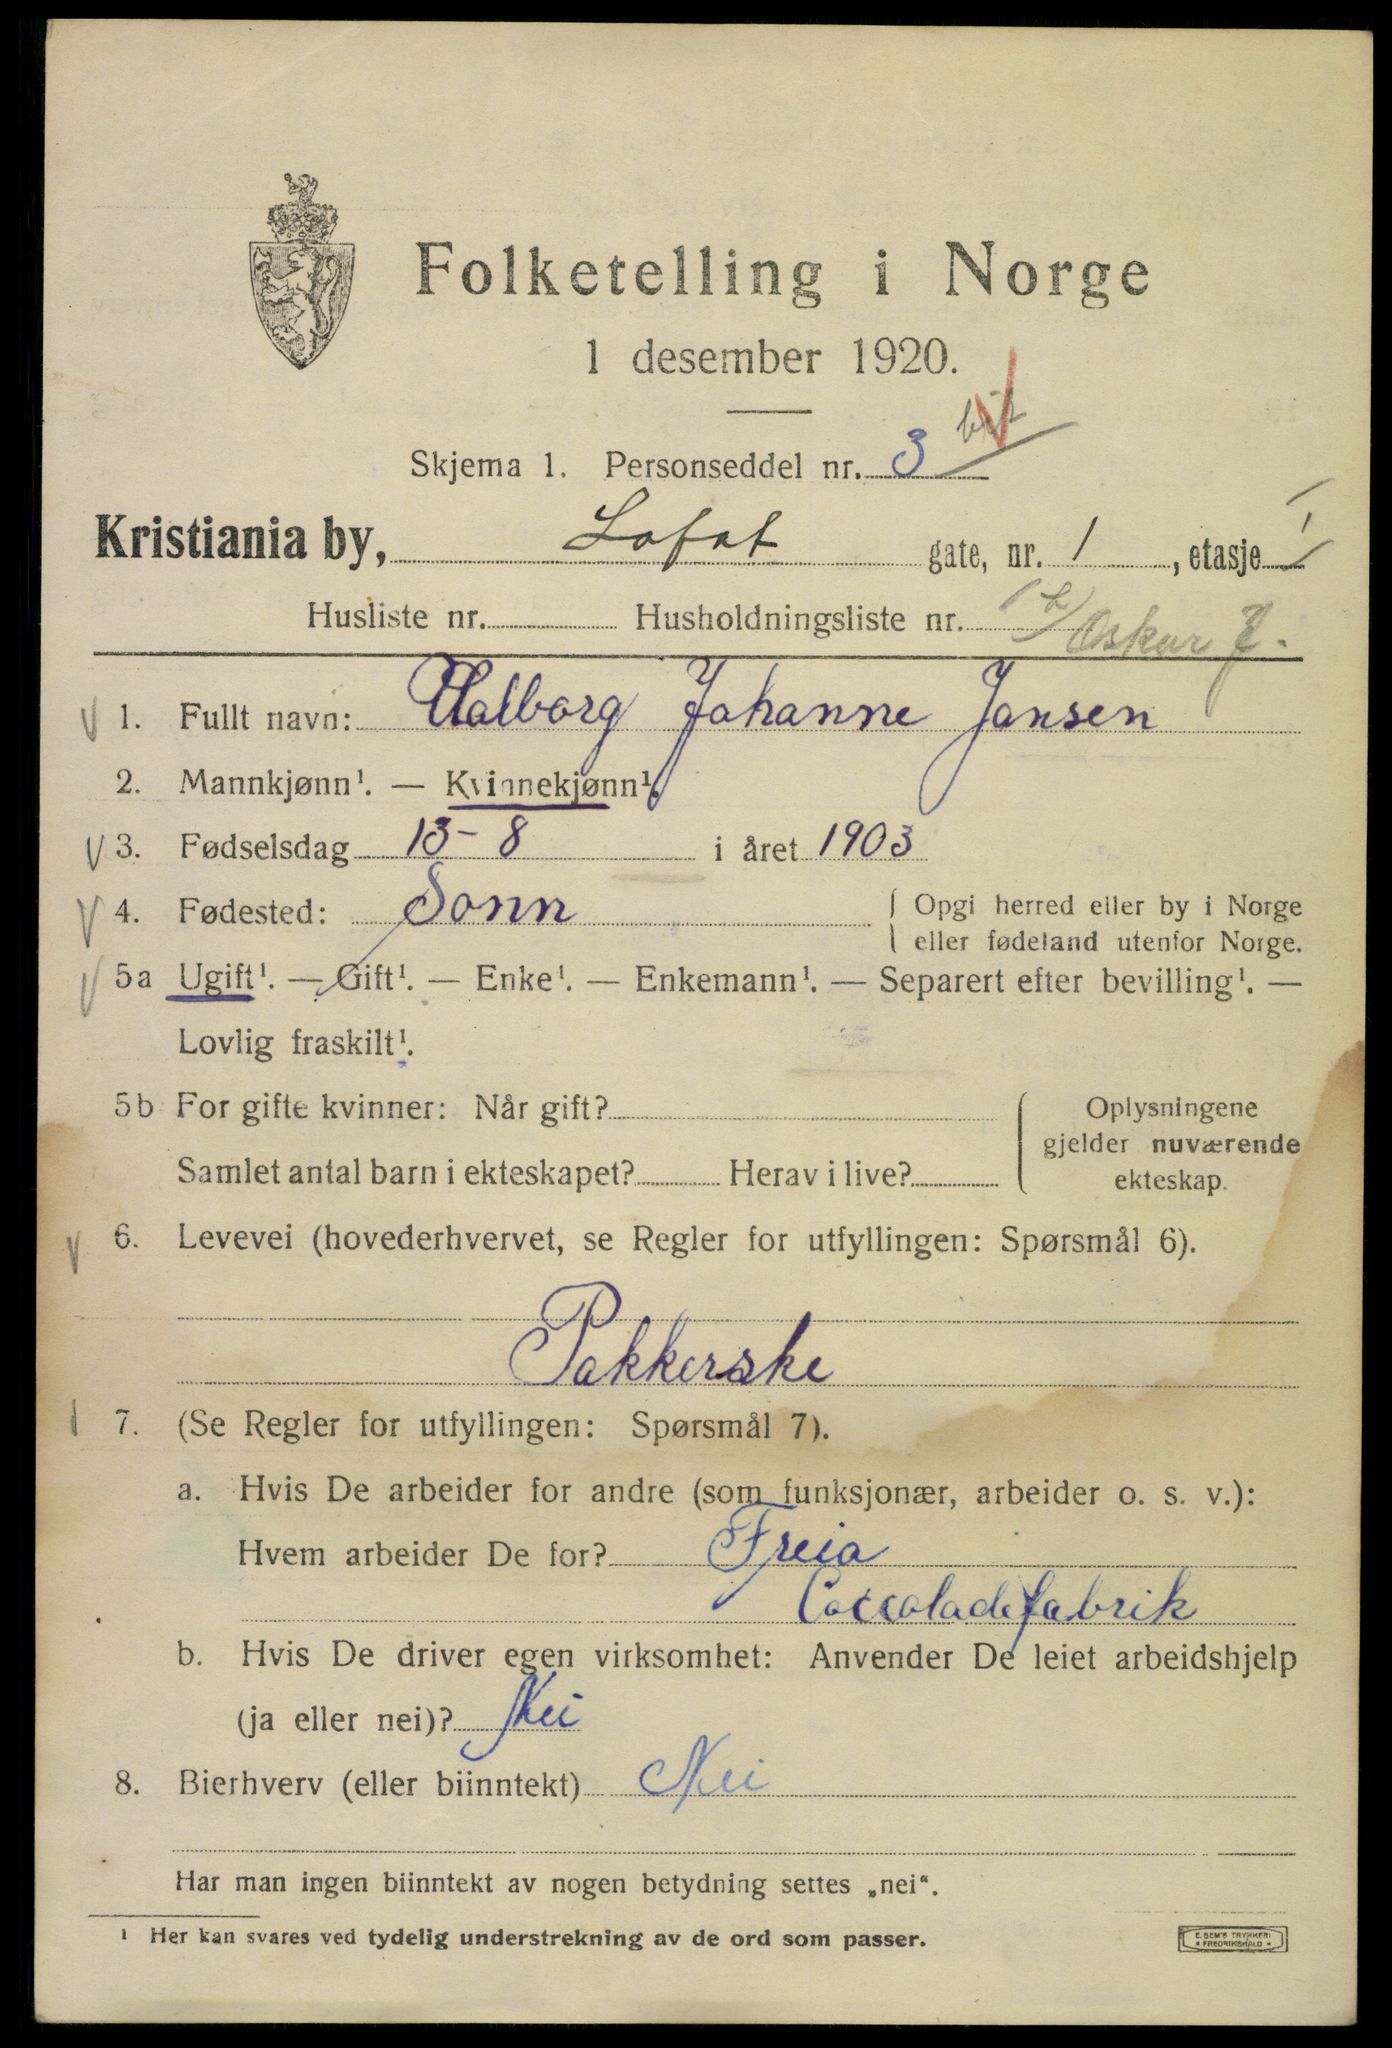 Folketelling i Norge
1 desember 1920.
Skjema 1. Personseddel nr. 3
Kristiania by, Lofot gate, nr. 1, etasje I
Husliste nr. Husholdningsliste nr. 1 Oskar J.
1. Fullt navn: Valborg Johanne Jansen
2. Mannkjønn¹. — Kvinnekjønn¹.
3. Fødselsdag 13-8 i året 1903
4. Fødested: Sonn { Opgi herred eller by i Norge
eller fødeland utenfor Norge.
5a Ugift¹. — Gift¹. — Enke¹. — Enkemann¹. — Separert efter bevilling¹. —
Lovlig fraskilt¹.
5b For gifte kvinner: Når gift?
Samlet antal barn i ekteskapet? Herav i live?
Oplysningene
gjelder nuværende
ekteskap.
6. Levevei (hovederhvervet, se Regler for utfyllingen: Spørsmål 6).
Pakkerske
7. (Se Regler for utfyllingen: Spørsmål 7).
a. Hvis De arbeider for andre (som funksjonær, arbeider o. s. v.):
Hvem arbeider De for? Freia
Coccoladefabrik
b. Hvis De driver egen virksomhet: Anvender De leiet arbeidshjelp
(ja eller nei)? Nei
8. Bierhverv (eller biinntekt) Nei
Har man ingen biinntekt av nogen betydning settes „nei“.
¹ Her kan svares ved tydelig understrekning av de ord som passer.
E. SEM'S TRYKKERI
* FREDRIKSHALD *